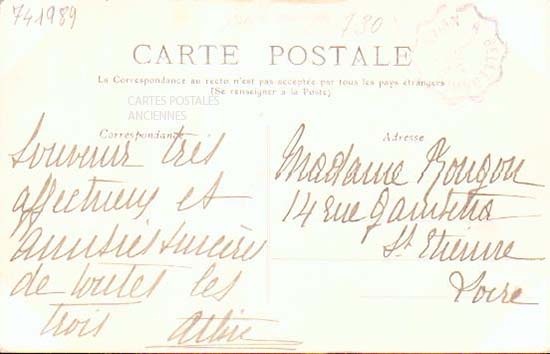 741989
730
CARTE POSTALE
La Correspondance au recto n'est pas acceptée par tous les pays étrangers
(Se renseigner à la Poste).
CARTES POSTALES
ANCIENNES
Correspondance
Adresse
Souvenir très
affectueux et
amitiés sincères
de toutes les
trois
Madame Rougon
14 rue Gambetta
St Etienne
Loire